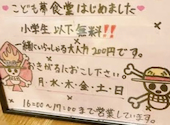 こども食堂はじめました
小学生以下無料!!
一緒にいらしゃる大人1 200円です。
おきがるにおこし下さい。
月・水・木・金・土・日
16:00〜19:00まで営業しています。